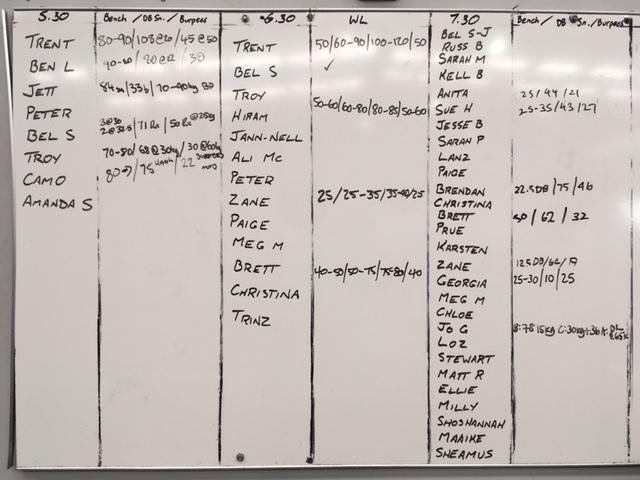 5.30 Bench / DB Sn. / Burpees
TRENT 80-90/108@20/45@50
BEN L 90-80 / 30
JETT 70-90kg
PETER 3@30 71Rx / 50Rx @25kg
BEL S 2@32.5
TROY 70-80/68@30kg/30@60kg
CAMO 80 / 75 / 22
AMANDA S
6.30 WL
TRENT 50/60-90/100-120/50
BEL S ✓
TROY
HIRAM 50-60/60-80/80-85/50-60
JANN-NELL
ALI MC
PETER
ZANE 25/25-35/35-40/25
PAIGE
MEG M
BRETT 40-50/50-75/75-80/40
CHRISTINA
TRINZ
7.30 Bench / DB Sn. / Burpees
BEL S-J
RUSS B
SARAH M
KELL B
ANITA 25/44/21
SUE H 25-35/43/27
JESSE B
SARAH P
LANZ
PAIGE
BRENDAN 22.5DB/75/46
CHRISTINA
BRETT 50/62/32
PRUE
KARSTEN
ZANE
GEORGIA 25-30/10/25
MEG M
CHLOE
JO G
LOZ
STEWART
MATT R
ELLIE
MILLY
SHOSHANNAH
MAAIKE
SHEAMUS